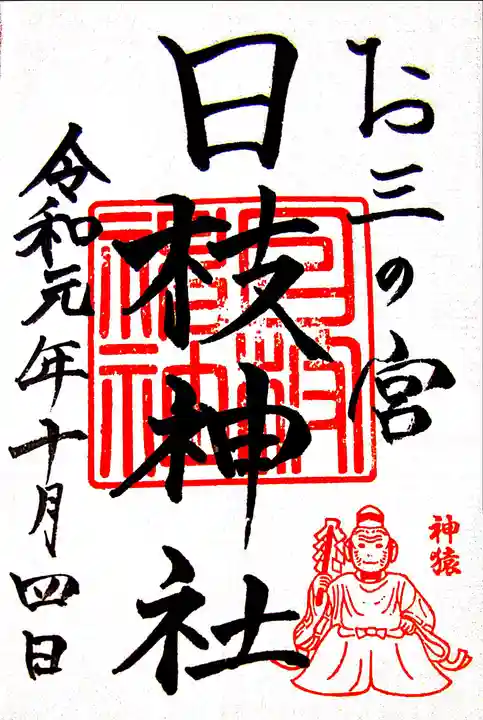 お三の宮
日枝神社
令和元年十月四日
神猿